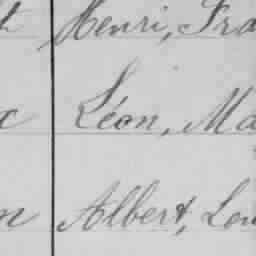 Henri, Fra
Léon, Ma
Albert, Lou